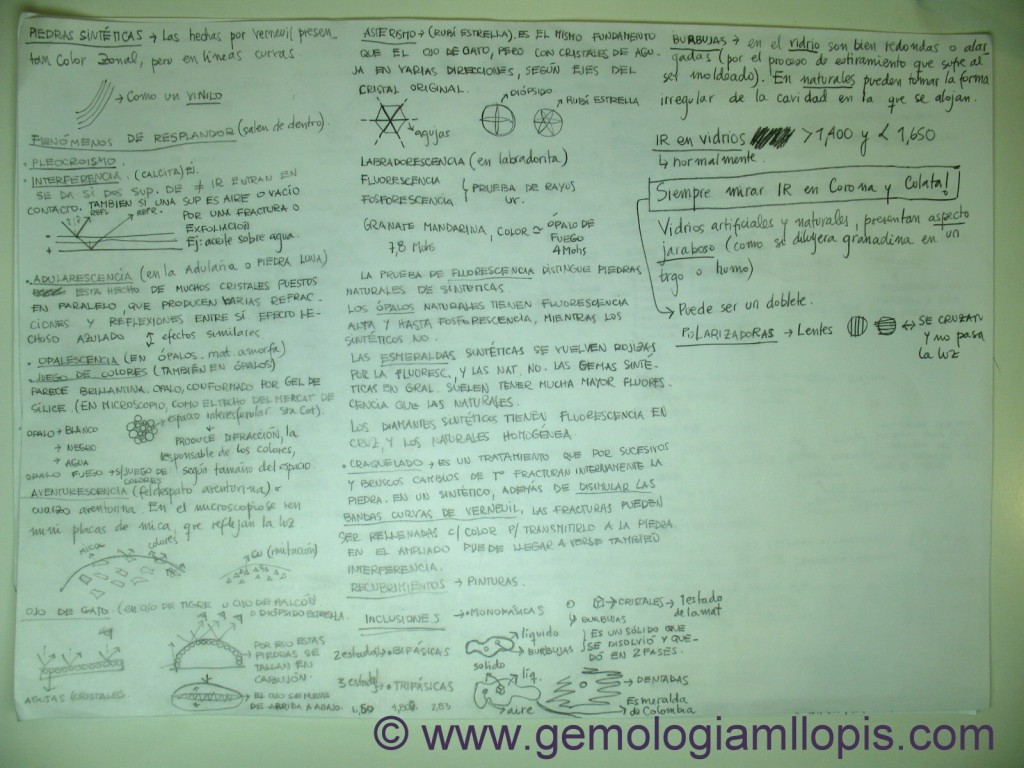 PIEDRAS SINTÉTICAS → Las hechas por verneuil presen-
tan color zonal, pero en líneas curvas.
→ Como un VINILO
FENÓMENOS DE RESPLANDOR (salen de dentro).
• PLEOCROISMO.
• INTERFERENCIA. (CALCITA)
SE DA SI DOS SUP. DE ≠ IR ENTRAN EN
CONTACTO. TAMBIEN SI UNA SUP ES AIRE O VACÍO
REFL. REFR. POR UNA FRACTURA O
EXFOLIACIÓN
Ej: aceite sobre agua.
• ADULARESCENCIA (en la Adularia o PIEDRA LUNA)
ESTA HECHO DE MUCHOS CRISTALES PUESTOS
EN PARALELO, QUE PRODUCEN VARIAS REFRAC-
CIONES Y REFLEXIONES ENTRE SÍ EFECTO LE-
CHOSO AZULADO
efectos similares
• OPALESCENCIA (EN ÓPALOS. mat. amorfa)
• JUEGO DE COLORES (TAMBIÉN EN ÓPALOS)
PARECE BRILLANTINA. OPALO, CONFORMADO POR GEL DE
SÍLICE. (EN MICROSCOPIO, COMO EL TECHO DEL MERCAT DE
Sta Cat).
OPALO → BLANCO
→ NEGRO
→ AGUA
PRODUCE DIFRACCIÓN, la
responsable de los colores,
según tamaño del espacio.
OPALO FUEGO → S/JUEGO DE
COLORES
AVENTURESCENCIA (feldespato aventurina) o
cuarzo aventurina. En el microscopio se ven
mini placas de mica, que reflejan la luz
mica
colores
cu (imitación)
OJO DE GATO (en OJO DE TIGRE U OJO DE HALCÓN
O DIÓPSIDO ESTRELLA.
POR ESO ESTAS
PIEDRAS SE
TALLAN EN
CABUJÓN.
AGUJAS CRISTALES.
EL OJO SE MUEVE
DE ARRIBA A ABAJO.
ASTERISMO → (RUBÍ ESTRELLA). ES EL MISMO FUNDAMENTO
QUE EL OJO DE GATO, PERO CON CRISTALES DE AGU-
JA EN VARIAS DIRECCIONES, SEGÚN EJES DEL
CRISTAL ORIGINAL.
DIÓPSIDO
RUBÍ ESTRELLA
agujas
LABRADORESCENCIA (en labradorita)
FLUORESCENCIA
FOSFORESCENCIA
PRUEBA DE RAYOS
UV.
GRANATE MANDARINA, COLOR ≃ ÓPALO DE
FUEGO
7,8 Mohs
4 Mohs
LA PRUEBA DE FLUORESCENCIA DISTINGUE PIEDRAS
NATURALES DE SINTÉTICAS.
LOS ÓPALOS NATURALES TIENEN FLUORESCENCIA
ALTA Y HASTA FOSFORESCENCIA, MIENTRAS LOS
SINTÉTICOS NO.
LAS ESMERALDAS SINTÉTICAS SE VUELVEN ROJIZAS
POR LA FLUORESC., Y LAS NAT. NO. LAS GEMAS SINTÉ-
TICAS EN GRAL. SUELEN TENER MUCHA MAYOR FLUORES-
CENCIA QUE LAS NATURALES.
LOS DIAMANTES SINTÉTICOS TIENEN FLUORESCENCIA EN
CRUZ, Y LOS NATURALES HOMOGÉNEA.
• CRAQUELADO → ES UN TRATAMIENTO QUE POR SUCESIVOS
Y BRUSCOS CAMBIOS DE Tº FRACTURAN INTERNAMENTE LA
PIEDRA. EN UN SINTÉTICO, ADEMÁS DE DISIMULAR LAS
BANDAS CURVAS DE VERNEUIL, LAS FRACTURAS PUEDEN
SER RELLENADAS C/ COLOR P/ TRANSMITIRLO A LA PIEDRA.
EN EL AMPLIADO PUEDE LLEGAR A VERSE TAMBIÉN
INTERFERENCIA.
RECUBRIMIENTOS → PINTURAS.
INCLUSIONES → • MONOFÁSICAS
→ CRISTALES → 1 estado
de la mat
BURBUJAS
2 estados → • BIFÁSICAS
líquido
BURBUJAS
ES UN SÓLIDO QUE
SE DISOLVIÓ Y QUE-
DÓ EN 2 FASES.
solido
3 estados → • TRIFÁSICAS
líq.
aire
→ DENTADAS
Esmeralda
de Colombia
BURBUJAS → en el vidrio son bien redondas o alar
gadas (por el proceso de estiramiento que sufre al
ser moldeado). En naturales pueden tomar la forma
irregular de la cavidad en la que se alojan.
IR en vidrios > 1,400 y < 1,650
↳ normalmente.
Siempre mirar IR en Corona y Culata!
Vidrios artificiales y naturales, presentan aspecto
jaraboso (como si diluyera granadina en un
trgo o humo)
→ Puede ser un doblete.
POLARIZADORAS → Lentes
↔ SE CRUZAN
Y no pasa
la luz
© www.gemologiamllopis.com